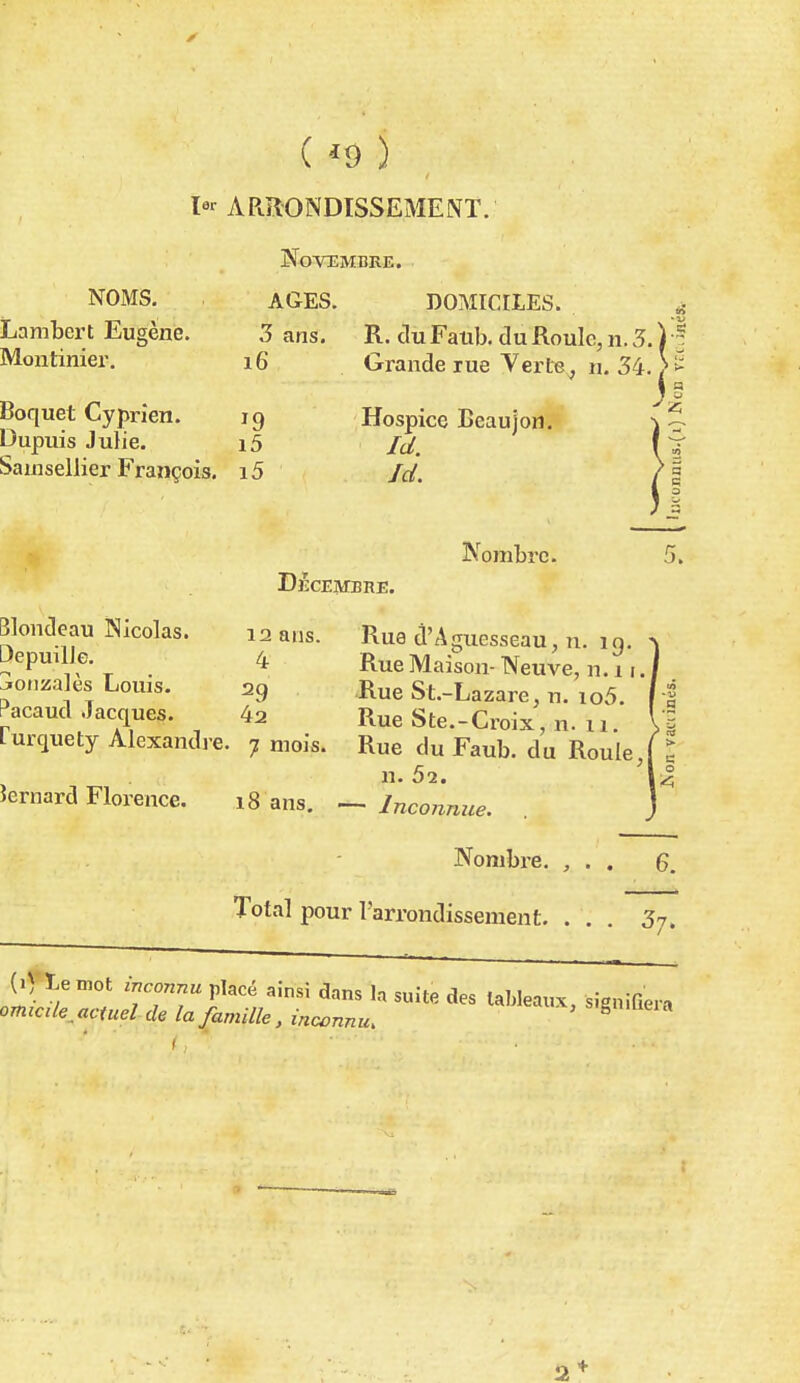 ( 19 )
Ier ARRONDISSEMENT.
NOVEMBRE.
NOMS. AGES. DOMICILES.
Lambert Eugène. 3 ans. R. du Faub. du Roule, n. 3.
Montinier. 16 Grande rue Verte, n. 34.
Non vaccinés.
Boquet Cyprien. 19 Hospice Beaujon.
Dupuis Julie. 15 Id.
Samsellier François. 15 Id.
Inconnus.(1)
Nombre. 5.
DÉCEMBRE.
Blondeau Nicolas. 12 ans. Rue d'Aguesseau, n. 19.
Depuille. 4 Rue Maison-Neuve, n. 11.
Gonzalès Louis. 29 Rue St.-Lazare, n. 105.
Pacaud Jacques. 42 Rue Ste.-Croix, n. 11.
Turquety Alexandre. 7 mois. Rue du Faub. du Roule,
n. 52.
Bernard Florence. 18 ans. — Inconnue.
Non vaccinés.
Nombre. , . . 6.
Total pour l'arrondissement. . . . 37.
(1) Le mot inconnu placé ainsi dans la suite des tableaux, signifiera
omicile actuel de la famille, inconnu.
2*